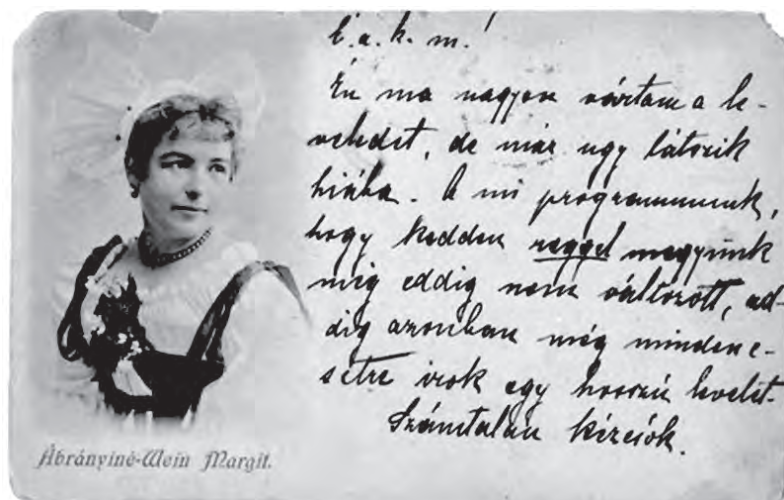 É. a. k. m.!
Én ma nagyon vártam a le-
veledet, de már ugy látszik
hiába. A mi programmunk,
hogy kedden reggel megyünk
még eddig nem változott, ad-
dig azonban még mindene-
setre irok egy hosszú levelet.
Számtalan kézcsók.
Ábrányiné-Wein Margit.